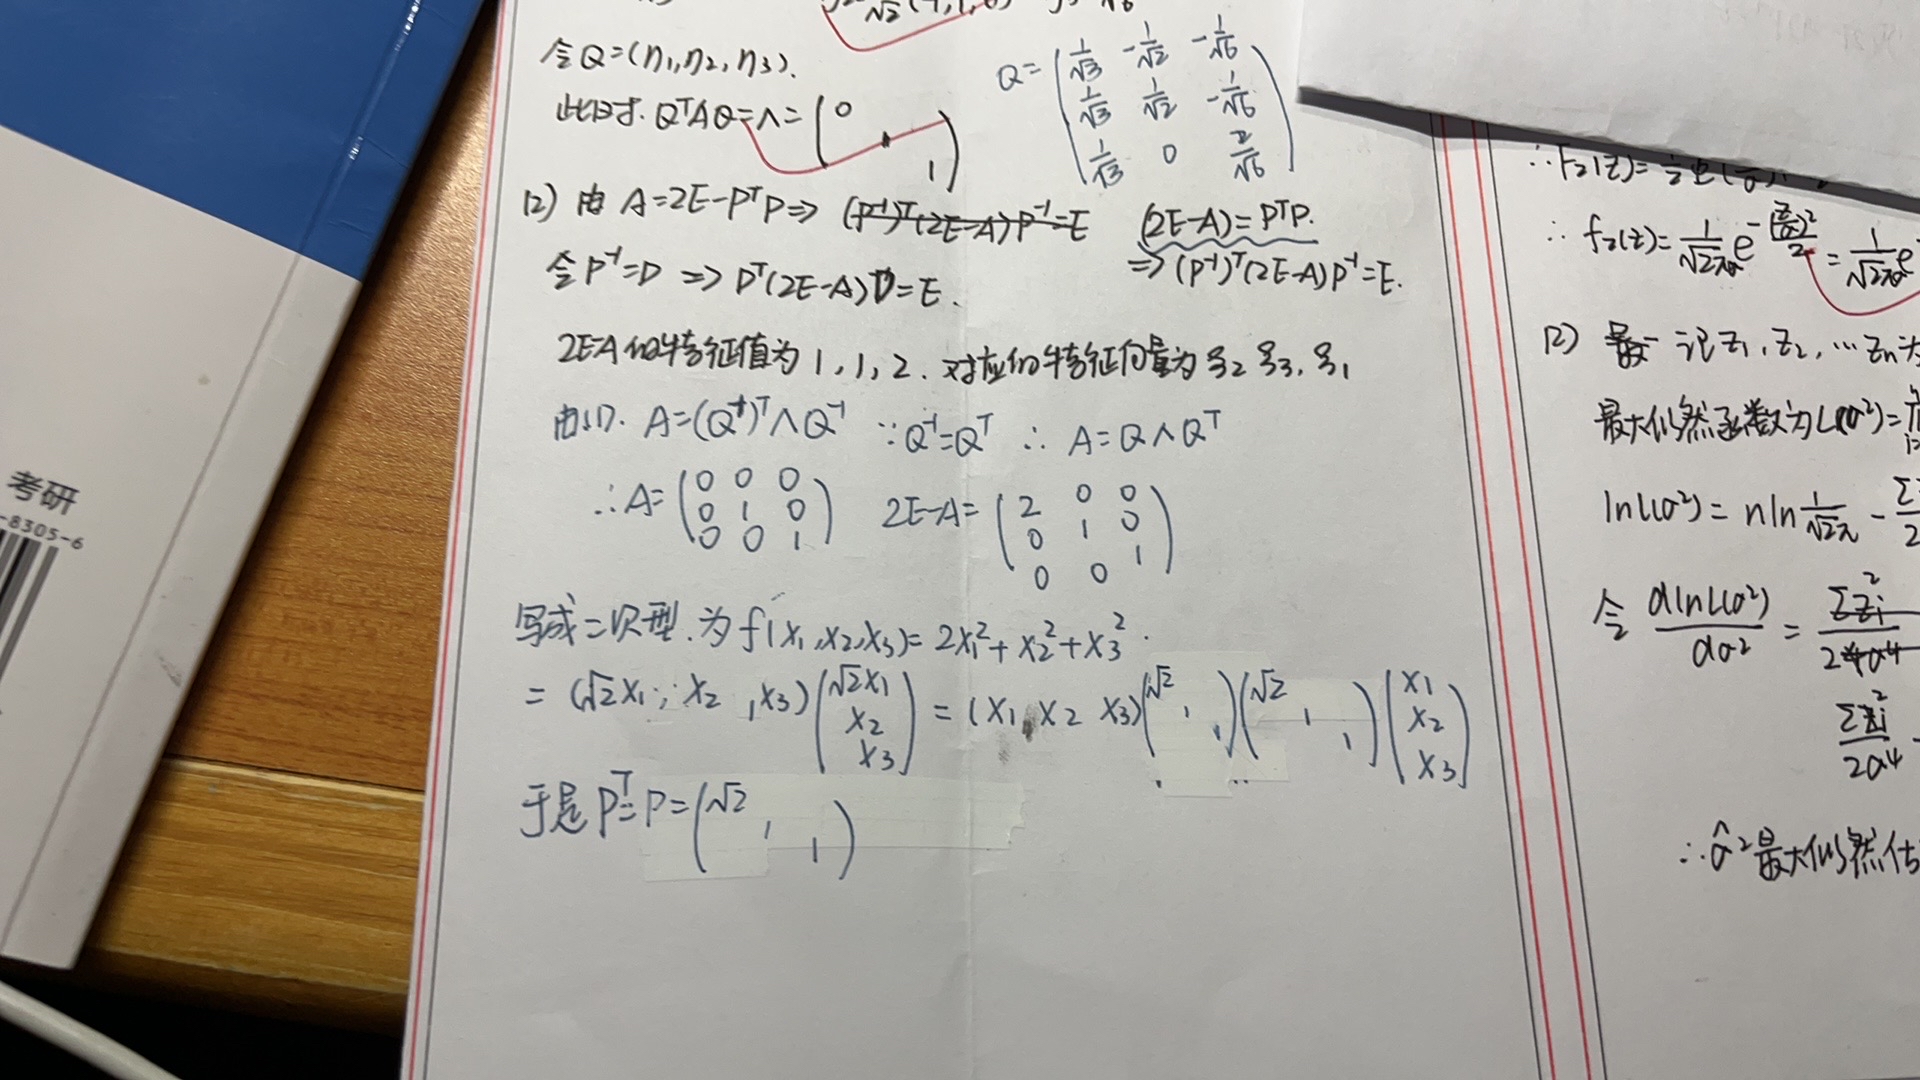 令Q=(η1,η2,η3).
Q=(1/√3 -1/√2 -1/√6
1/√3 1/√2 -1/√6
1/√3 0 2/√6)
此时. QᵀAQ=Λ=(0
1
1)
(2) 由 A=2E-PᵀP⇒ (P⁻¹)ᵀ(2E-A)P⁻¹=E (2E-A)=PᵀP.
⇒(P⁻¹)ᵀ(2E-A)P⁻¹=E.
令P⁻¹=D ⇒ Dᵀ(2E-A)D=E.
2E-A的特征值为1,1,2. 对应的特征向量为ξ2 ξ3, ξ1
由(1). A=(Q⁻¹)ᵀΛQ⁻¹ ∵Q⁻¹=Qᵀ ∴ A=QΛQᵀ
∴A=(0 0 0
0 1 0
0 0 1)
2E-A=(2 0 0
0 1 0
0 0 1)
写成二次型.为f(x1,x2,x3)=2x1²+x2²+x3².
=(√2x1, x2, x3)(√2x1
x2
x3)
=(x1 x2 x3)(√2
1
1)(√2
1
1)(x1
x2
x3)
于是Pᵀ=P=(√2
1
1)
考研
-8305-6
∴f_Z(z)=1/√2πσ e^-(z/σ)²/2=1/√2πσ e
(2) 记Z1,Z2,…Zn
最大似然函数为L(σ²)=
lnL(σ²)=nln1/√2π -
令 dlnL(σ²)/dσ² = ΣZi²/2σ⁴
ΣZi²/2σ⁴
∴σ̂²最大似然估